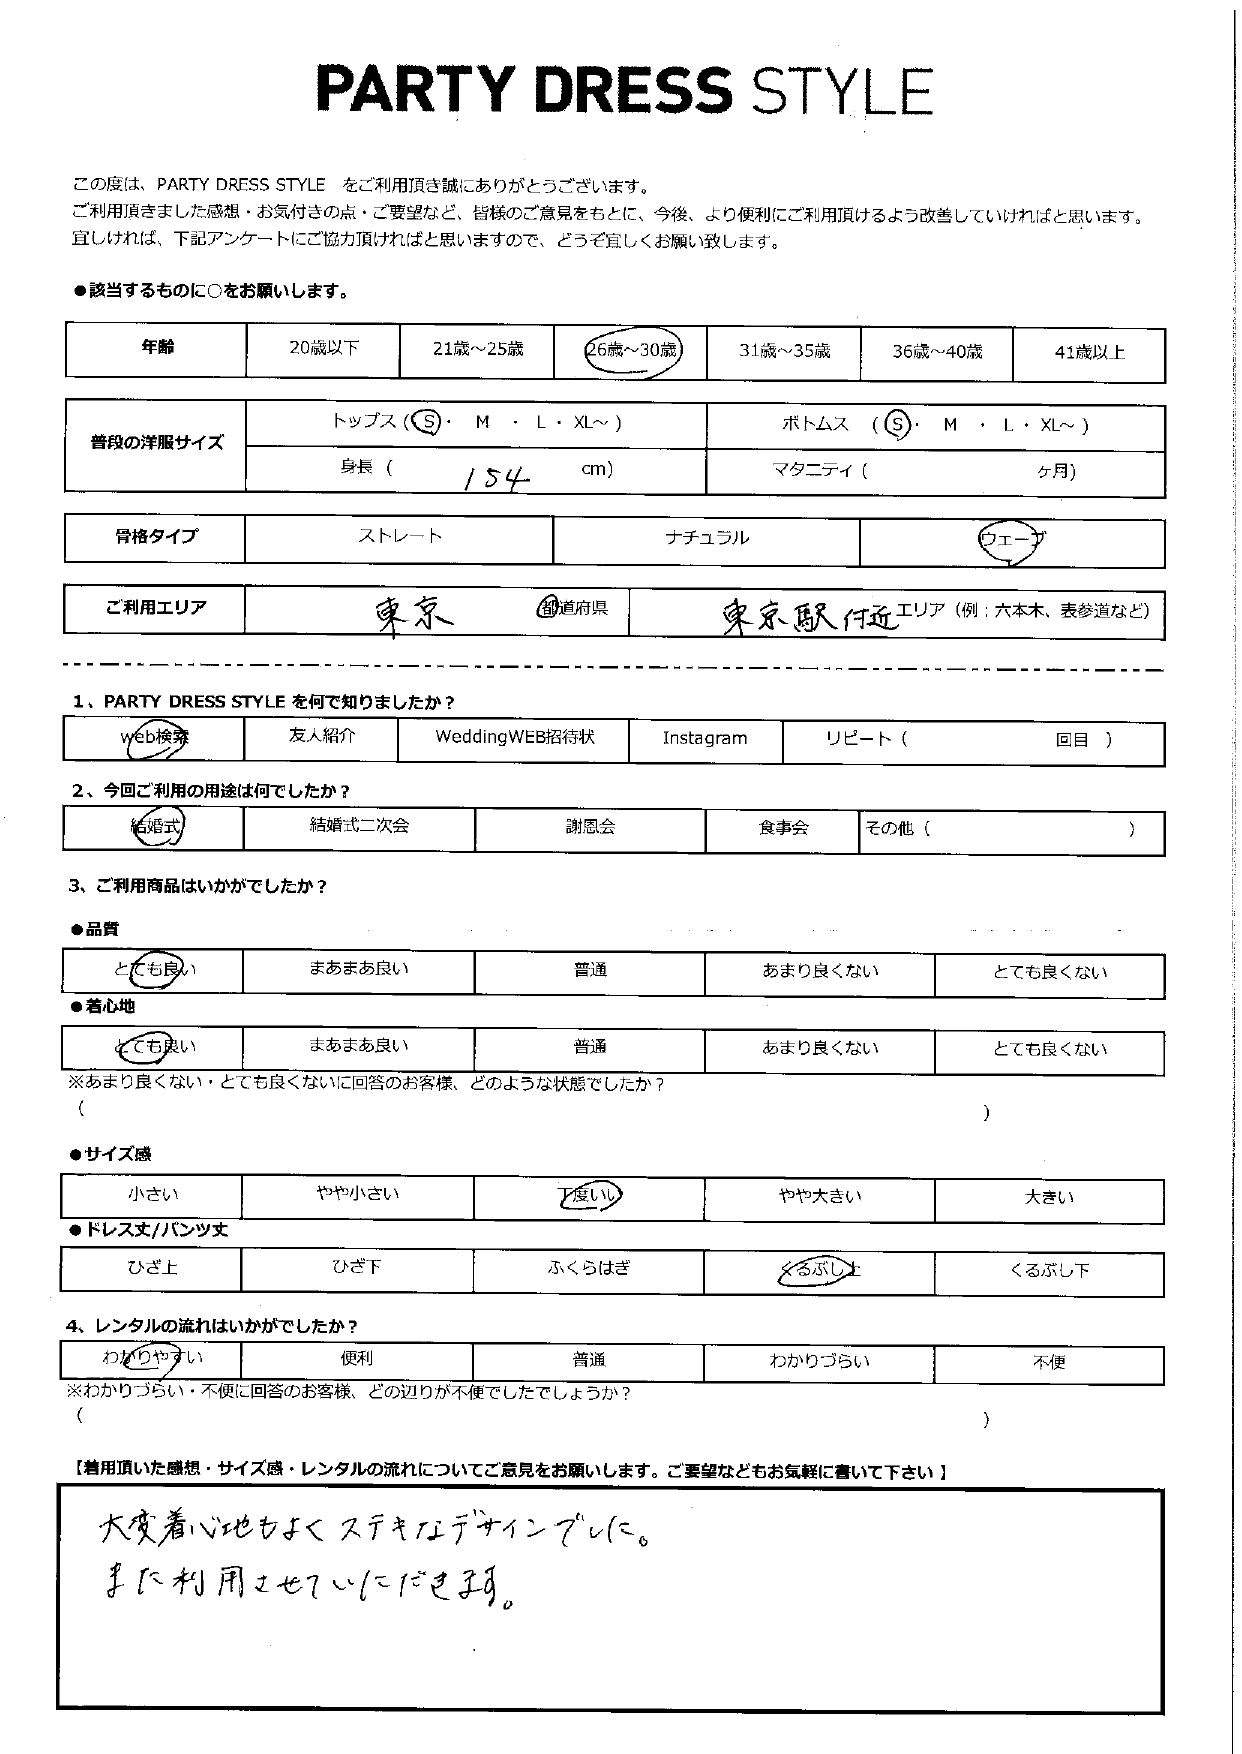 PARTY DRESS STYLE
この度は、PARTY DRESS STYLE をご利用頂き誠にありがとうございます。
ご利用頂きました感想・お気付きの点・ご要望など、皆様のご意見をもとに、今後、より便利にご利用頂けるよう改善していければと思います。
宜しければ、下記アンケートにご協力頂ければと思いますので、どうぞ宜しくお願い致します。
●該当するものに○をお願いします。
年齢 20歳以下 21歳～25歳 26歳～30歳 31歳～35歳 36歳～40歳 41歳以上
普段の洋服サイズ
トップス (S・ M ・ L ・ XL～ ) ボトムス (S・ M ・ L ・ XL～ )
身長 ( 154 cm) マタニティ ( ケ月)
骨格タイプ ストレート ナチュラル ウェーブ
ご利用エリア 東京 都道府県 東京駅付近 エリア（例：六本木、表参道など）
1、PARTY DRESS STYLE を何で知りましたか？
web検索 友人紹介 WeddingWEB招待状 Instagram リピート ( 回目 )
2、今回ご利用の用途は何でしたか？
結婚式 結婚式二次会 謝恩会 食事会 その他 ( )
3、ご利用商品はいかがでしたか？
●品質
とても良い まあまあ良い 普通 あまり良くない とても良くない
●着心地
とても良い まあまあ良い 普通 あまり良くない とても良くない
※あまり良くない・とても良くないに回答のお客様、どのような状態でしたか？
( )
●サイズ感
小さい やや小さい 丁度いい やや大きい 大きい
●ドレス丈/パンツ丈
ひざ上 ひざ下 ふくらはぎ くるぶし上 くるぶし下
4、レンタルの流れはいかがでしたか？
わかりやすい 便利 普通 わかりづらい 不便
※わかりづらい・不便に回答のお客様、どの辺りが不便でしたでしょうか？
( )
【着用頂いた感想・サイズ感・レンタルの流れについてご意見をお願いします。ご要望などもお気軽に書いて下さい 】
大変着心地もよくステキなデザインでした。
また利用させていただきます。